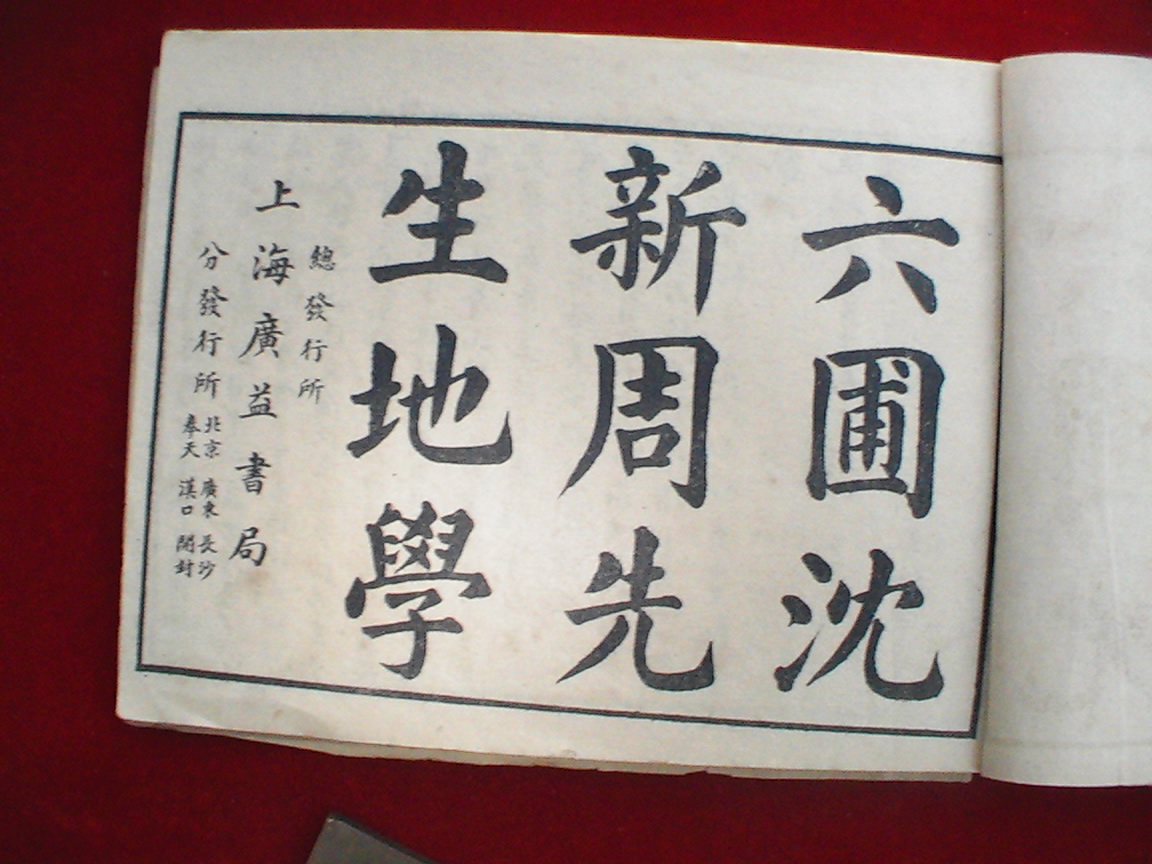 六圃沈
新周先
生地學
總發行所
上海廣益書局
分發行所
北京 廣東 長沙
奉天 漢口 開封